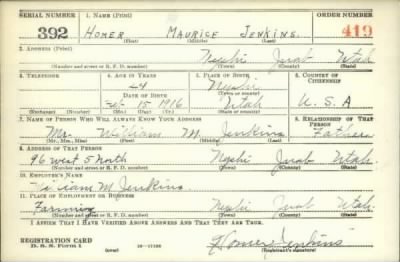 SERIAL NUMBER 1. NAME (Print) ORDER NUMBER
392 HOMER MAURICE JENKINS. 419
(First) (Middle) (Last)
2. ADDRESS (Print)
Nephi Juab Utah
(Number and street or R. F. D. number) (Town) (County) (State)
3. TELEPHONE 4. AGE IN YEARS 5. PLACE OF BIRTH 6. COUNTRY OF CITIZENSHIP
24 Nephi
DATE OF BIRTH (Town or county)
Feb 15 1916 Utah U. S. A
(Exchange) (Number) (Mo.) (Day) (Yr.) (State or country)
7. NAME OF PERSON WHO WILL ALWAYS KNOW YOUR ADDRESS 8. RELATIONSHIP OF THAT PERSON
Mr. William M. Jenkins Father
(Mr., Mrs., Miss) (First) (Middle) (Last)
9. ADDRESS OF THAT PERSON
96 west 5 North Nephi Juab Utah.
(Number and street or R. F. D. number) (Town) (County) (State)
10. EMPLOYER'S NAME
William M. Jenkins.
11. PLACE OF EMPLOYMENT OR BUSINESS
Farming Nephi Juab Utah
(Number and street or R. F. D. number) (Town) (County) (State)
I AFFIRM THAT I HAVE VERIFIED ABOVE ANSWERS AND THAT THEY ARE TRUE.
REGISTRATION CARD Homer Jenkins
D. S. S. Form 1 (over) (Registrant's signature)